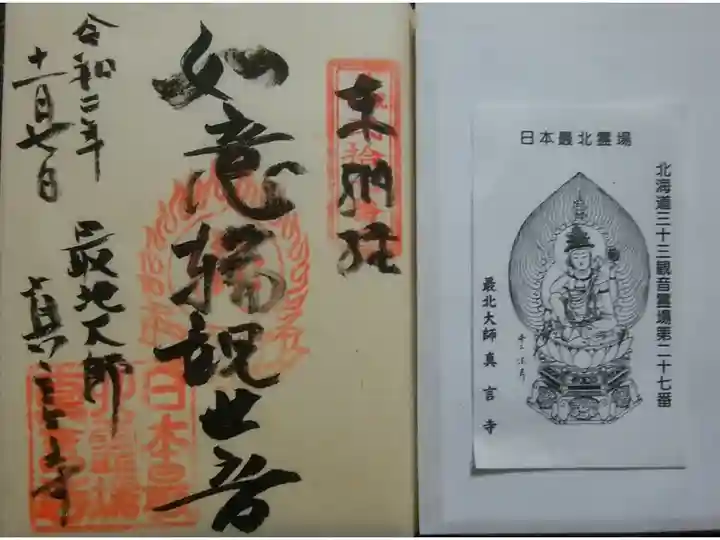 奉納経
如意輪観世音
令和二年
十一月七日
最北大師
真言寺
日本最北霊場
北海道三十三観音霊場第二十七番
最北大師真言寺